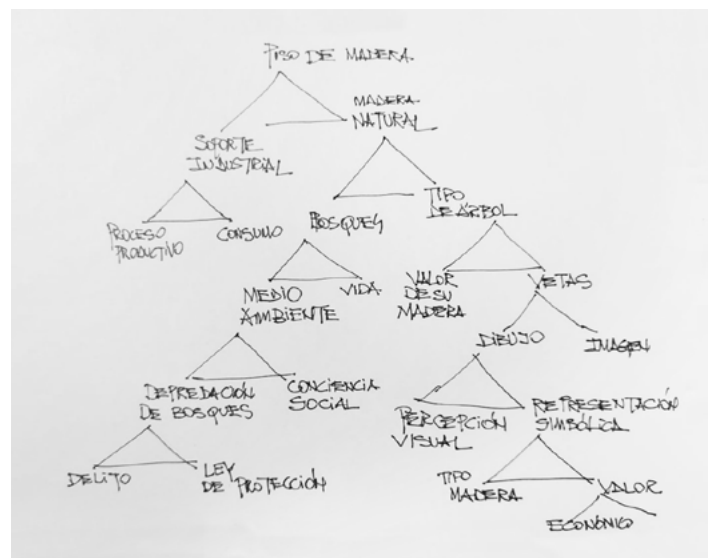 PISO DE MADERA
MADERA
NATURAL
SOPORTE
INDUSTRIAL
BOSQUES
TIPO
DE ÁRBOL
PROCESO
PRODUCTIVO
CONSUMO
MEDIO
AMBIENTE
VIDA
VALOR
DE SU
MADERA
VETAS
DIBUJO
IMAGEN
DEPREDACIÓN
DE BOSQUES
CONCIENCIA
SOCIAL
PERCEPCIÓN
VISUAL
REPRESENTACIÓN
SIMBÓLICA
DELITO
LEY
DE PROTECCIÓN
TIPO
MADERA
VALOR
ECONÓMICO